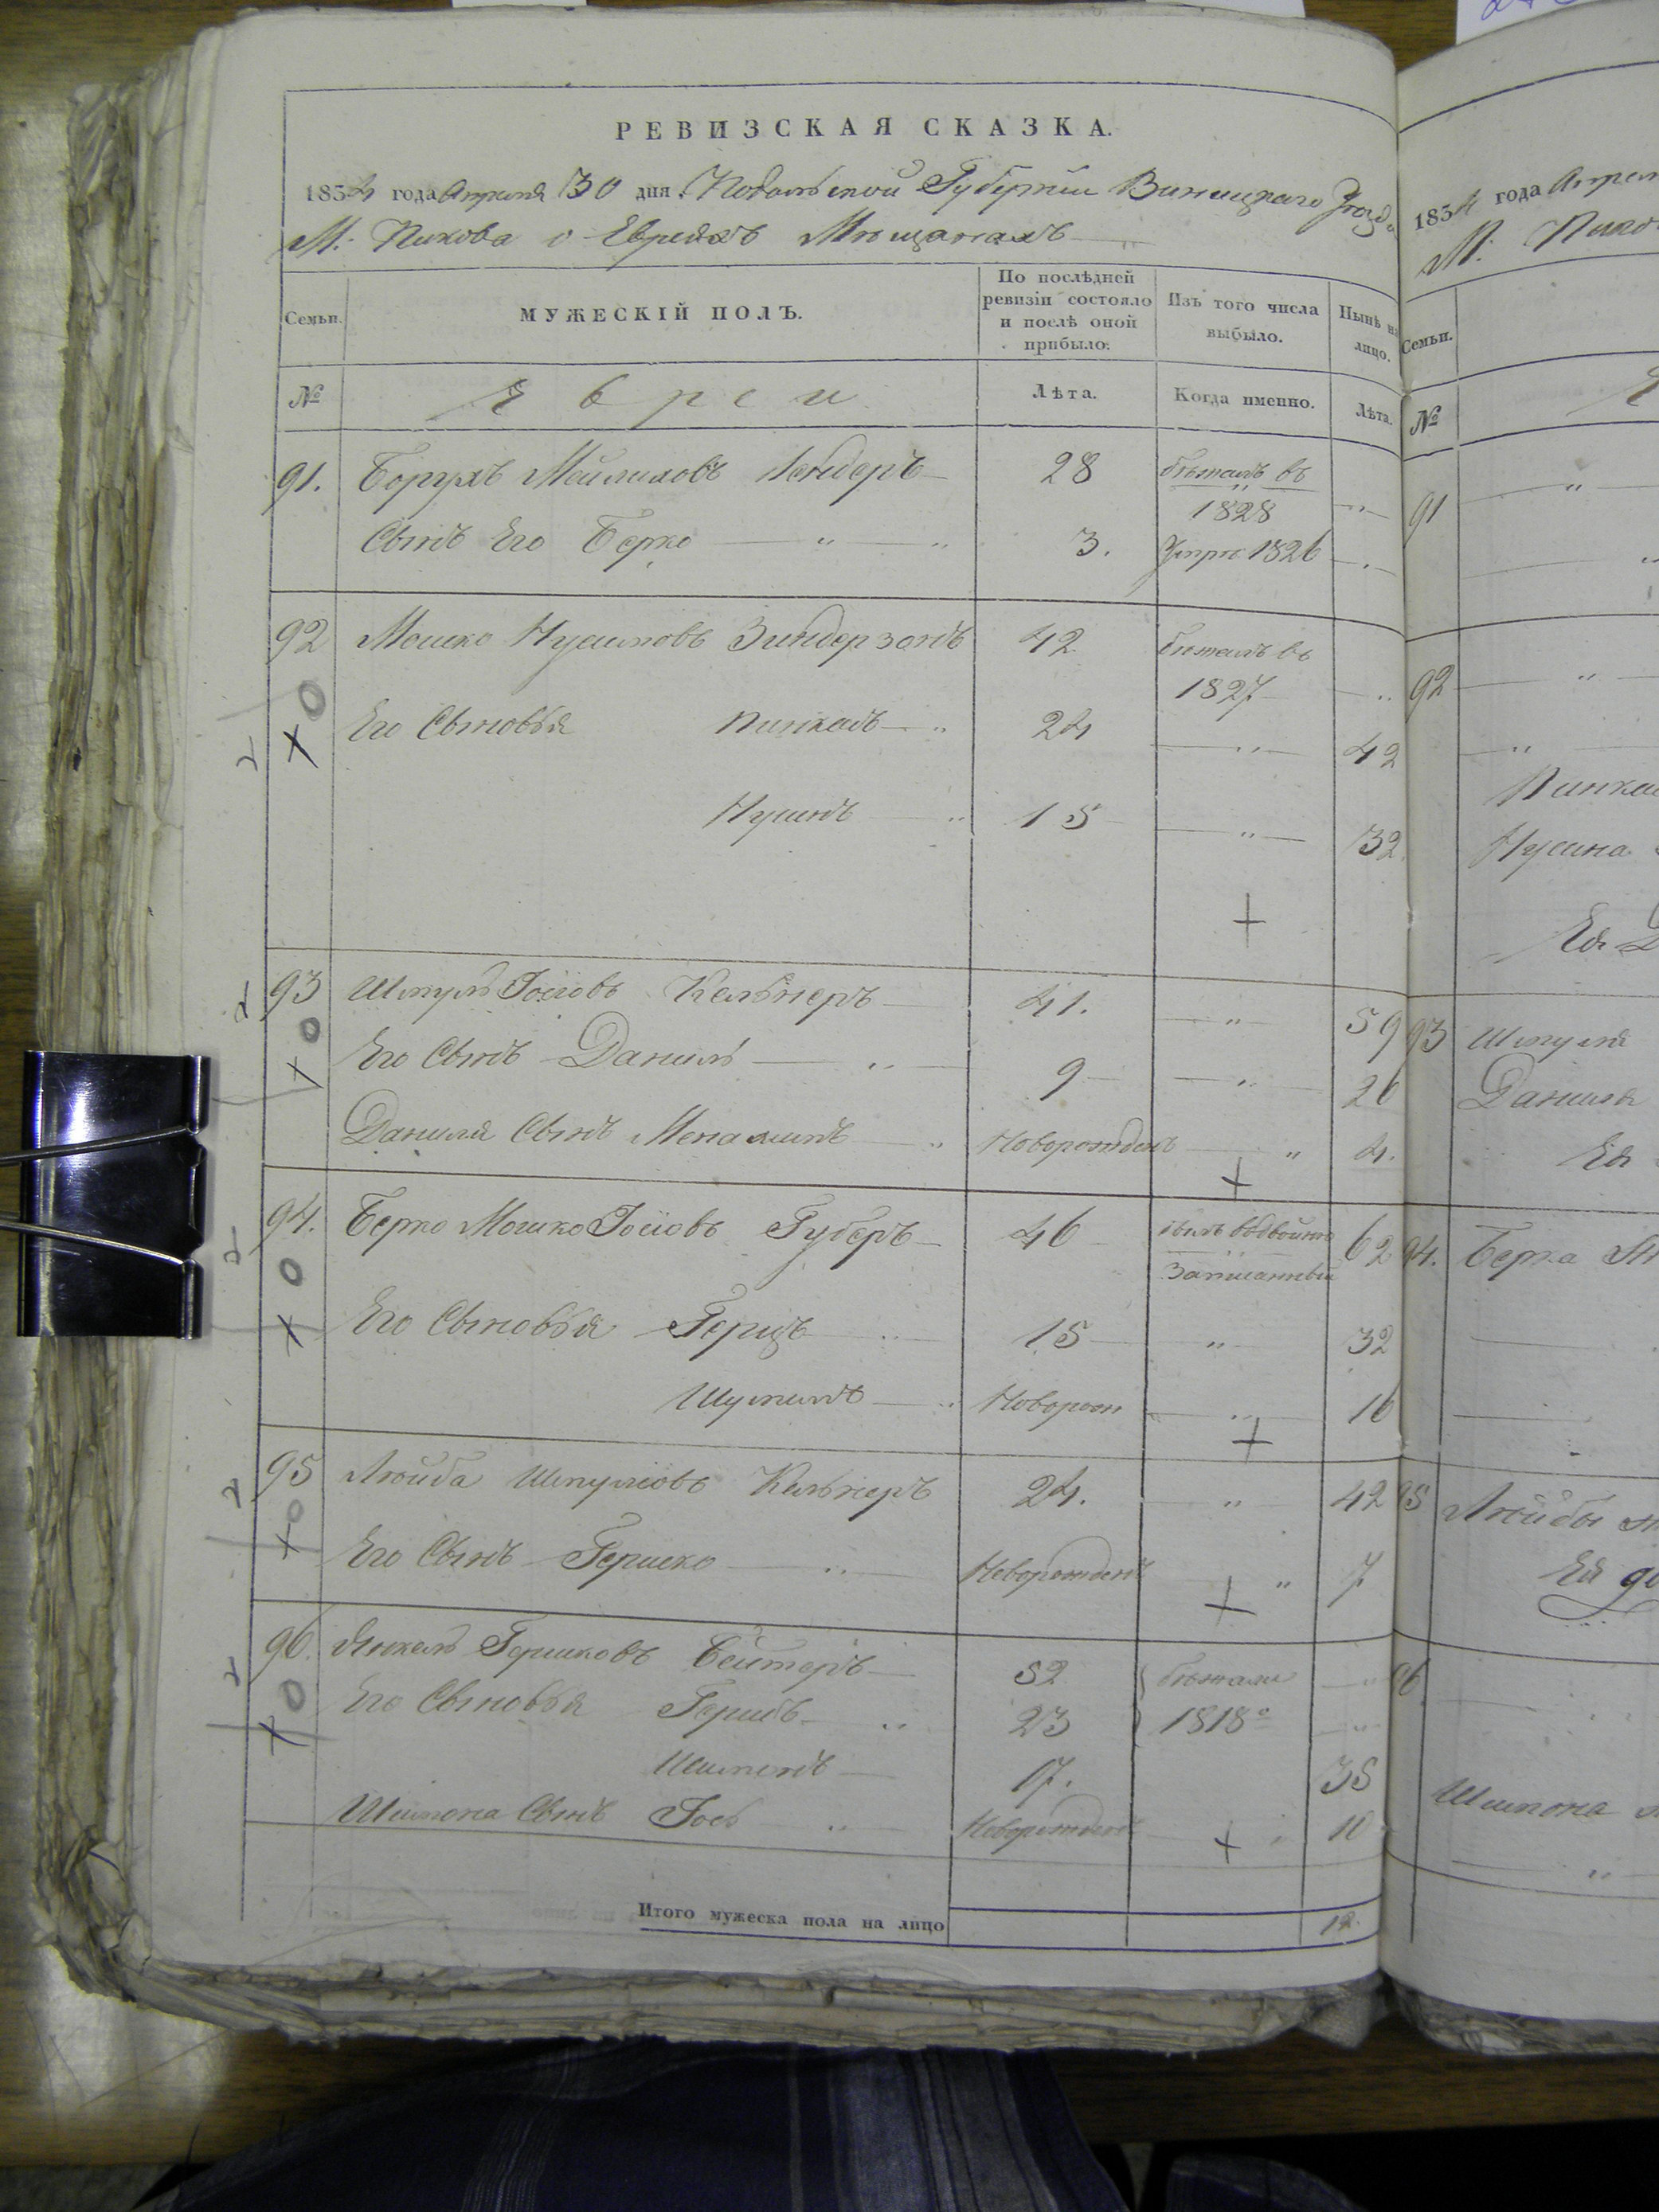 РЕВИЗСКАЯ СКАЗКА.
1854 года Апреля 30 дня Подольской Губерніи Винницкаго Уезда
М. Пикова о Евреяхъ Мещанахъ
Семьи.
МУЖЕСКІЙ ПОЛЪ.
По послѣдней ревизіи состояло и послѣ оной прибыло.
Изъ того числа выбыло.
Нынѣ на лицо.
№ Евреи Лѣта. Когда именно. Лѣта.
91. Борухъ Мейлиховъ 28 бежалъ въ
1828
Сынъ Его Берко 3. Умре 1826
92 Мошко Нусимовъ Зиндерзонъ 42 бежалъ въ
1827
Его Сыновья Пинхасъ 24 42
Нусинъ 15 32
93 Шмуль Іосіовъ Кельнеръ 41. 59
Его Сынъ Даниль 9 26
Даниля Сынъ Менашинъ Новорожденъ 4.
94. Берко Мошко Іосіовъ Губеръ 46 62
записанный
Его Сыновья Герцъ 15 32
Шулимъ Новорож 16
95 Лейба Шмулiовъ Кельнеръ 24. 42
Его Сынъ Гершко Новорожденъ 7
96. Янкель Гершковъ 52 бежали
Его Сыновья Гершъ 23 1818º
Шимонъ 17. 35
Шимона Сынъ Іось Новорожденъ 10
Итого мужеска пола на лицо 12.
1854 года Апрел
М.
Семьи.
№
91
92
Пинха
Нусина
Ея
93 Шмуля
Даниля
Ея
94. Берка
95 Лейбы
Ея до
96.
Шимона